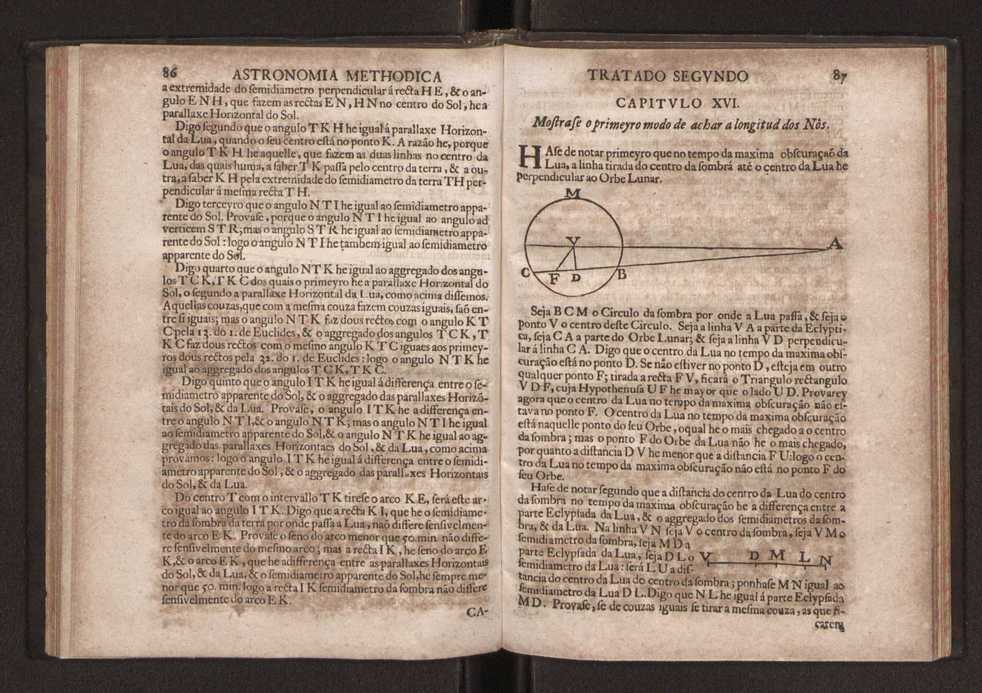 86 ASTRONOMIA METHODICA
a extremidade do semidiametro perpendicular á recta H E, & o an-
gulo E N H, que fazem as rectas E N, H N no centro do Sol, he a
parallaxe Horizontal do Sol.
Digo segundo que o angulo T K H he igual á parallaxe Horizon-
tal da Lua, quando o seu centro está no ponto K. A razão he, porque
o angulo T K H he aquelle, que fazem as duas linhas no centro da
Lua, das quais huma, a saber T K passa pelo centro da terra, & a ou-
tra, a saber K H pela extremidade do semidiametro da terra T H per-
pendicular á mesma recta T H.
Digo terceyro que o angulo N T I he igual ao semidiametro appa-
rente do Sol. Provase, porque o angulo N T I he igual ao angulo ad
verticem S T R; mas o angulo S T R he igual ao semidiametro appa-
rente do Sol: logo o angulo N T I he tambem igual ao semidiametro
apparente do Sol.
Digo quarto que o angulo N T K he igual ao aggregado dos angu-
los T C K, T K C dos quais o primeyro he a parallaxe Horizontal do
Sol, o segundo a parallaxe Horizontal da Lua, como acima dissemos.
Aquellas couzas, que com a mesma couza fazem couzas iguais, saõ en-
tre si iguais; mas o angulo N T K faz dous rectos com o angulo K T
C pela 13. do 1. de Euclides, & o aggregado dos angulos T C K, T
K C faz dous rectos com o mesmo angulo K T C iguaes aos primey-
ros dous rectos pela 32. do 1. de Euclides: logo o angulo N T K he
igual ao aggregado dos angulos T C K, T K C.
Digo quinto que o angulo I T K he igual á differença entre o se-
midiametro apparente do Sol, & o aggregado das parallaxes Horizõ-
tais do Sol, & da Lua. Provase, o angulo I T K he a differença en-
tre o angulo N T I, & o angulo N T K; mas o angulo N T I he igual
ao semidiametro apparente do Sol, & o angulo N T K he igual ao ag-
gregado das parallaxes Horizontaes do Sol, & da Lua, como acima
provamos: logo o angulo I T K he igual á differença entre o semidi-
ametro apparente do Sol, & o aggregado das parallaxes Horizontais
do Sol, & da Lua.
Do centro T com o intervallo T K tirese o arco K E, será este ar-
co igual ao angulo I T K. Digo que a recta K I, que he o semidiame-
tro da sombra da terra por onde passa a Lua, naõ differe sensivelmen-
te do arco E K. Provase o seno do arco menor que 50. min. não diffe-
re sensivelmente do mesmo arco; mas a recta I K, he seno do arco E
K, & o arco E K, que he a differença entre as parallaxes Horizontais
do Sol, & da Lua, & o semidiametro apparente do Sol, he sempre me-
nor que 50. min. logo a recta I K semidiametro da sombra não differe
sensivelmente do arco E K.
CA-
TRATADO SEGVNDO 87
CAPITVLO XVI.
Mostrase o primeyro modo de achar a longitud dos Nôs.
HAse de notar primeyro que no tempo da maxima obscuraçaõ da
Lua, a linha tirada do centro da sombra até o centro da Lua he
perpendicular ao Orbe Lunar.
M
V A
C F D B
Seja B C M o Circulo da sombra por onde a Lua passa, & seja o
ponto V o centro deste Circulo. Seja a linha V A a parte da Eclypti-
ca, seja C A a parte do Orbe Lunar; & seja a linha V D perpendicu-
lar á linha C A. Digo que o centro da Lua no tempo da maxima obs-
curação está no ponto D. Se não estiver no ponto D, esteja em outro
qualquer ponto F; tirada a recta F V, ficará o Triangulo rectangulo
V D F, cuja Hypothenusa U F he mayor que o lado U D. Provarey
agora que o centro da Lua no tempo da maxima obscuração não es-
tava no ponto F. O centro da Lua no tempo da maxima obscuração
está naquelle ponto do seu Orbe, o qual he o mais chegado a o centro
da sombra; mas o ponto F do Orbe da Lua não he o mais chegado,
por quanto a distancia D V he menor que a distancia F U: logo o cen-
tro da Lua no tempo da maxima obscuração não está no ponto F do
seu Orbe.
Hase de notar segundo que a distancia do centro da Lua do centro
da sombra no tempo da maxima obscuração he a differença entre a
parte Eclypsada da Lua, & o aggregado dos semidiametros da som-
bra, & da Lua. Na linha V N seja V o centro da sombra, seja V M o
semidiametro da sombra, seja M D a
parte Eclypsada da Lua, seja D L o V D M L N
semidiametro da Lua: será L U a dis-
tancia do centro da Lua do centro da sombra; ponhase M N igual ao
semidiametro da Lua D L. Digo que N L he igual á parte Eclypsada
M D. Provase, se de couzas iguais se tirar a mesma couza, as que fi-
carem